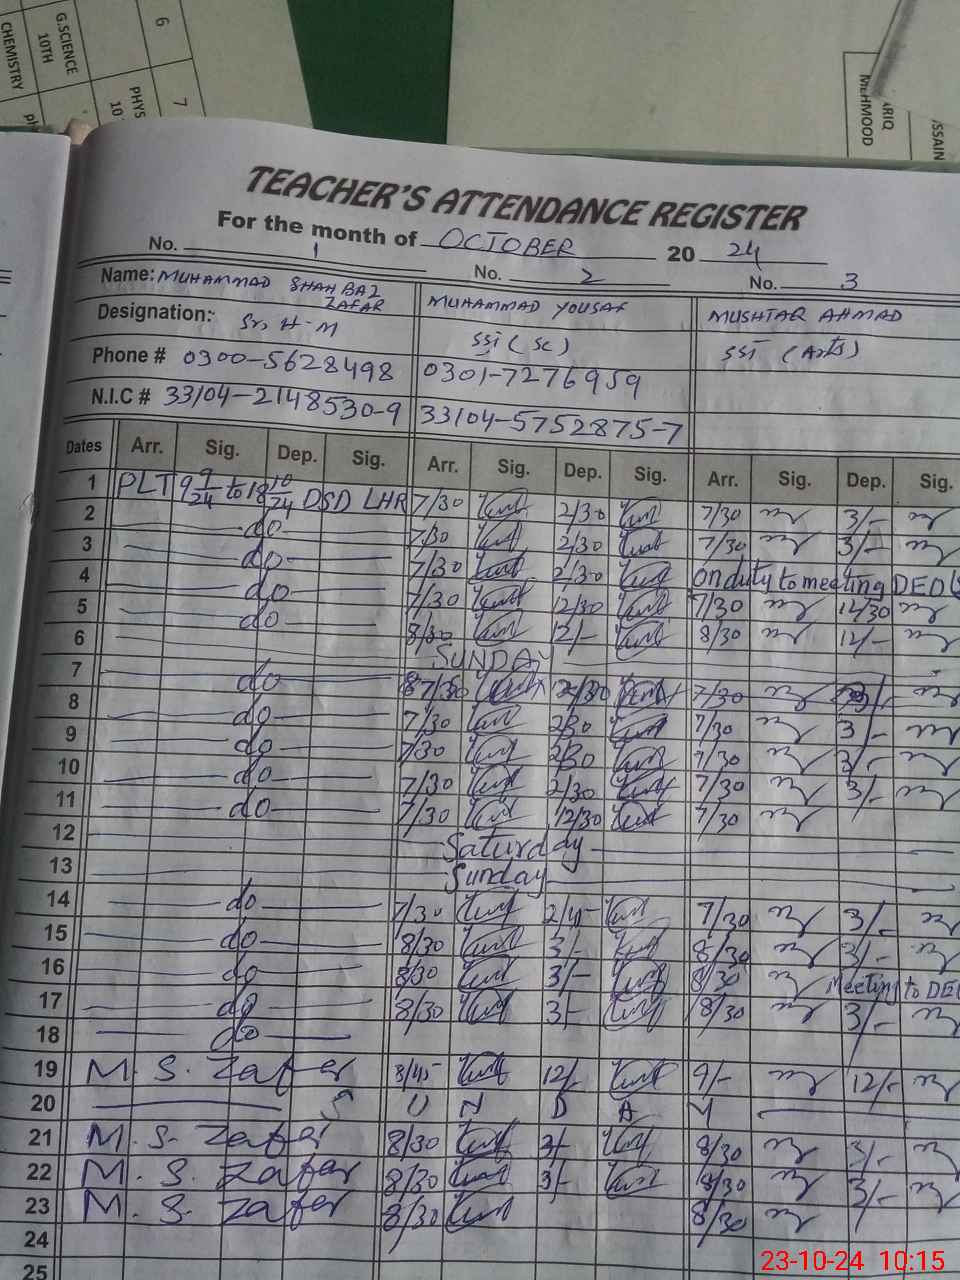 6
G.SCIENCE 10TH
CHEMISTRY
7
PHYS 10
ARIQ
MEHMOOD
SSAIN
TEACHER'S ATTENDANCE REGISTER
For the month of OCTOBER 2024
No. 1 No. 2 No. 3
Name: MUHAMMAD SHAHBAZ ZAFAR MUHAMMAD YOUSAF MUSHTAR AHMAD
Designation: Sr. H-M SSI (SC) SSI (Arts)
Phone # 0300-5628498 0301-7276959
N.I.C # 33104-2148530-9 33104-5752875-7
Dates Arr. Sig. Dep. Sig. Arr. Sig. Dep. Sig. Arr. Sig. Dep. Sig.
1 PLT 9 9/24 to 18 10/24 DSD LHR 7/30 2/30 7/30 3/-
2 do 7/30 2/30 7/30 3/-
3 do 7/30 2/30 On duty to meeting DEO
4 do 7/30 12/30 7/30 12/30
5 do 8/30 12/- 8/30 12/-
6 SUNDAY
7 do 7/30 2/30 7/30
8 do 7/30 2/30 7/30 3/-
9 do 7/30 2/30 7/30 3/-
10 do 7/30 2/30 7/30 3/-
11 do 7/30 12/30 7/30
12 Saturday
13 Sunday
14 do 7/30 2/45 7/30 3/-
15 do 8/30 3/- 8/30 3/-
16 do 8/30 3/- 8/30 Meeting to DEO
17 do 8/30 3/- 8/30 3/-
18 do
19 M. S. Zafer 8/45 12/- 9/- 12/-
20 S U N D A Y
21 M. S. Zafer 8/30 3/- 8/30 3/-
22 M. S. Zafer 8/30 3/- 8/30 3/-
23 M. S. Zafer 8/30 8/30
24
25
23-10-24 10:15